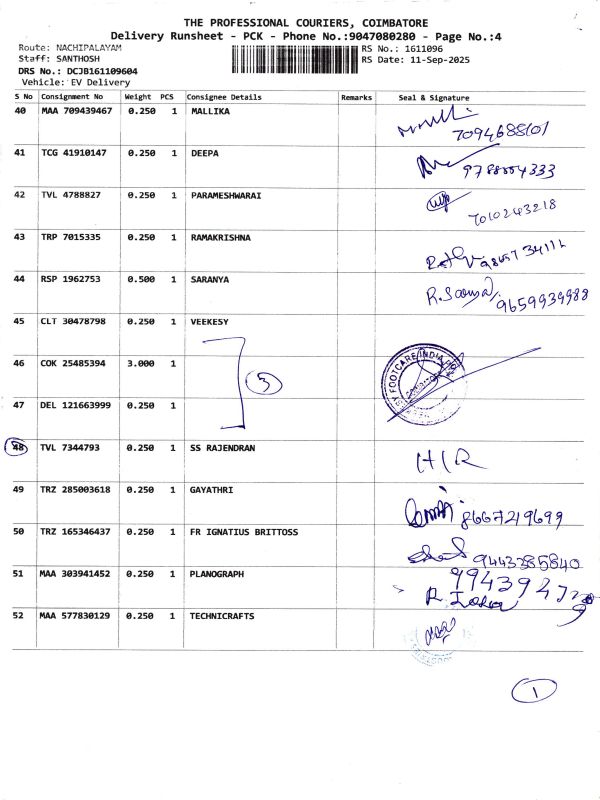 THE PROFESSIONAL COURIERS, COIMBATORE
Delivery Runsheet - PCK - Phone No.:9047080280 - Page No.:4
Route: NACHIPALAYAM RS No.: 1611096
Staff: SANTHOSH RS Date: 11-Sep-2025
DRS No.: DCJB161109604
Vehicle: EV Delivery
S No Consignment No Weight PCS Consignee Details Remarks Seal & Signature
40 MAA 709439467 0.250 1 MALLIKA
7094688101
41 TCG 41910147 0.250 1 DEEPA
42 TVL 4788827 0.250 1 PARAMESHWARAI
7010243218
43 TRP 7015335 0.250 1 RAMAKRISHNA
44 RSP 1962753 0.500 1 SARANYA
9659939988
45 CLT 30478798 0.250 1 VEEKESY
46 COK 25485394 3.000 1
3
FOOTCARE INDIA
47 DEL 121663999 0.250 1
48 TVL 7344793 0.250 1 SS RAJENDRAN
H/R
49 TRZ 285003618 0.250 1 GAYATHRI
8667219699
50 TRZ 165346437 0.250 1 FR IGNATIUS BRITTOSS
9443385840
51 MAA 303941452 0.250 1 PLANOGRAPH
52 MAA 577830129 0.250 1 TECHNICRAFTS
1